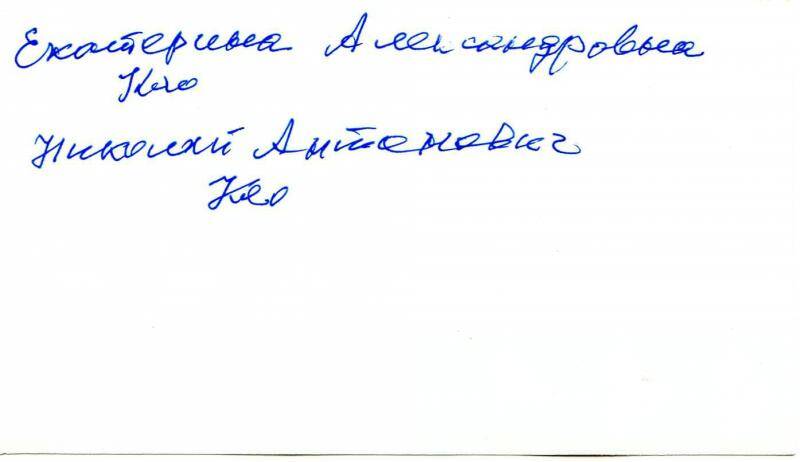 Екатерина Александровна
Кио
Николай Антонович
Кео